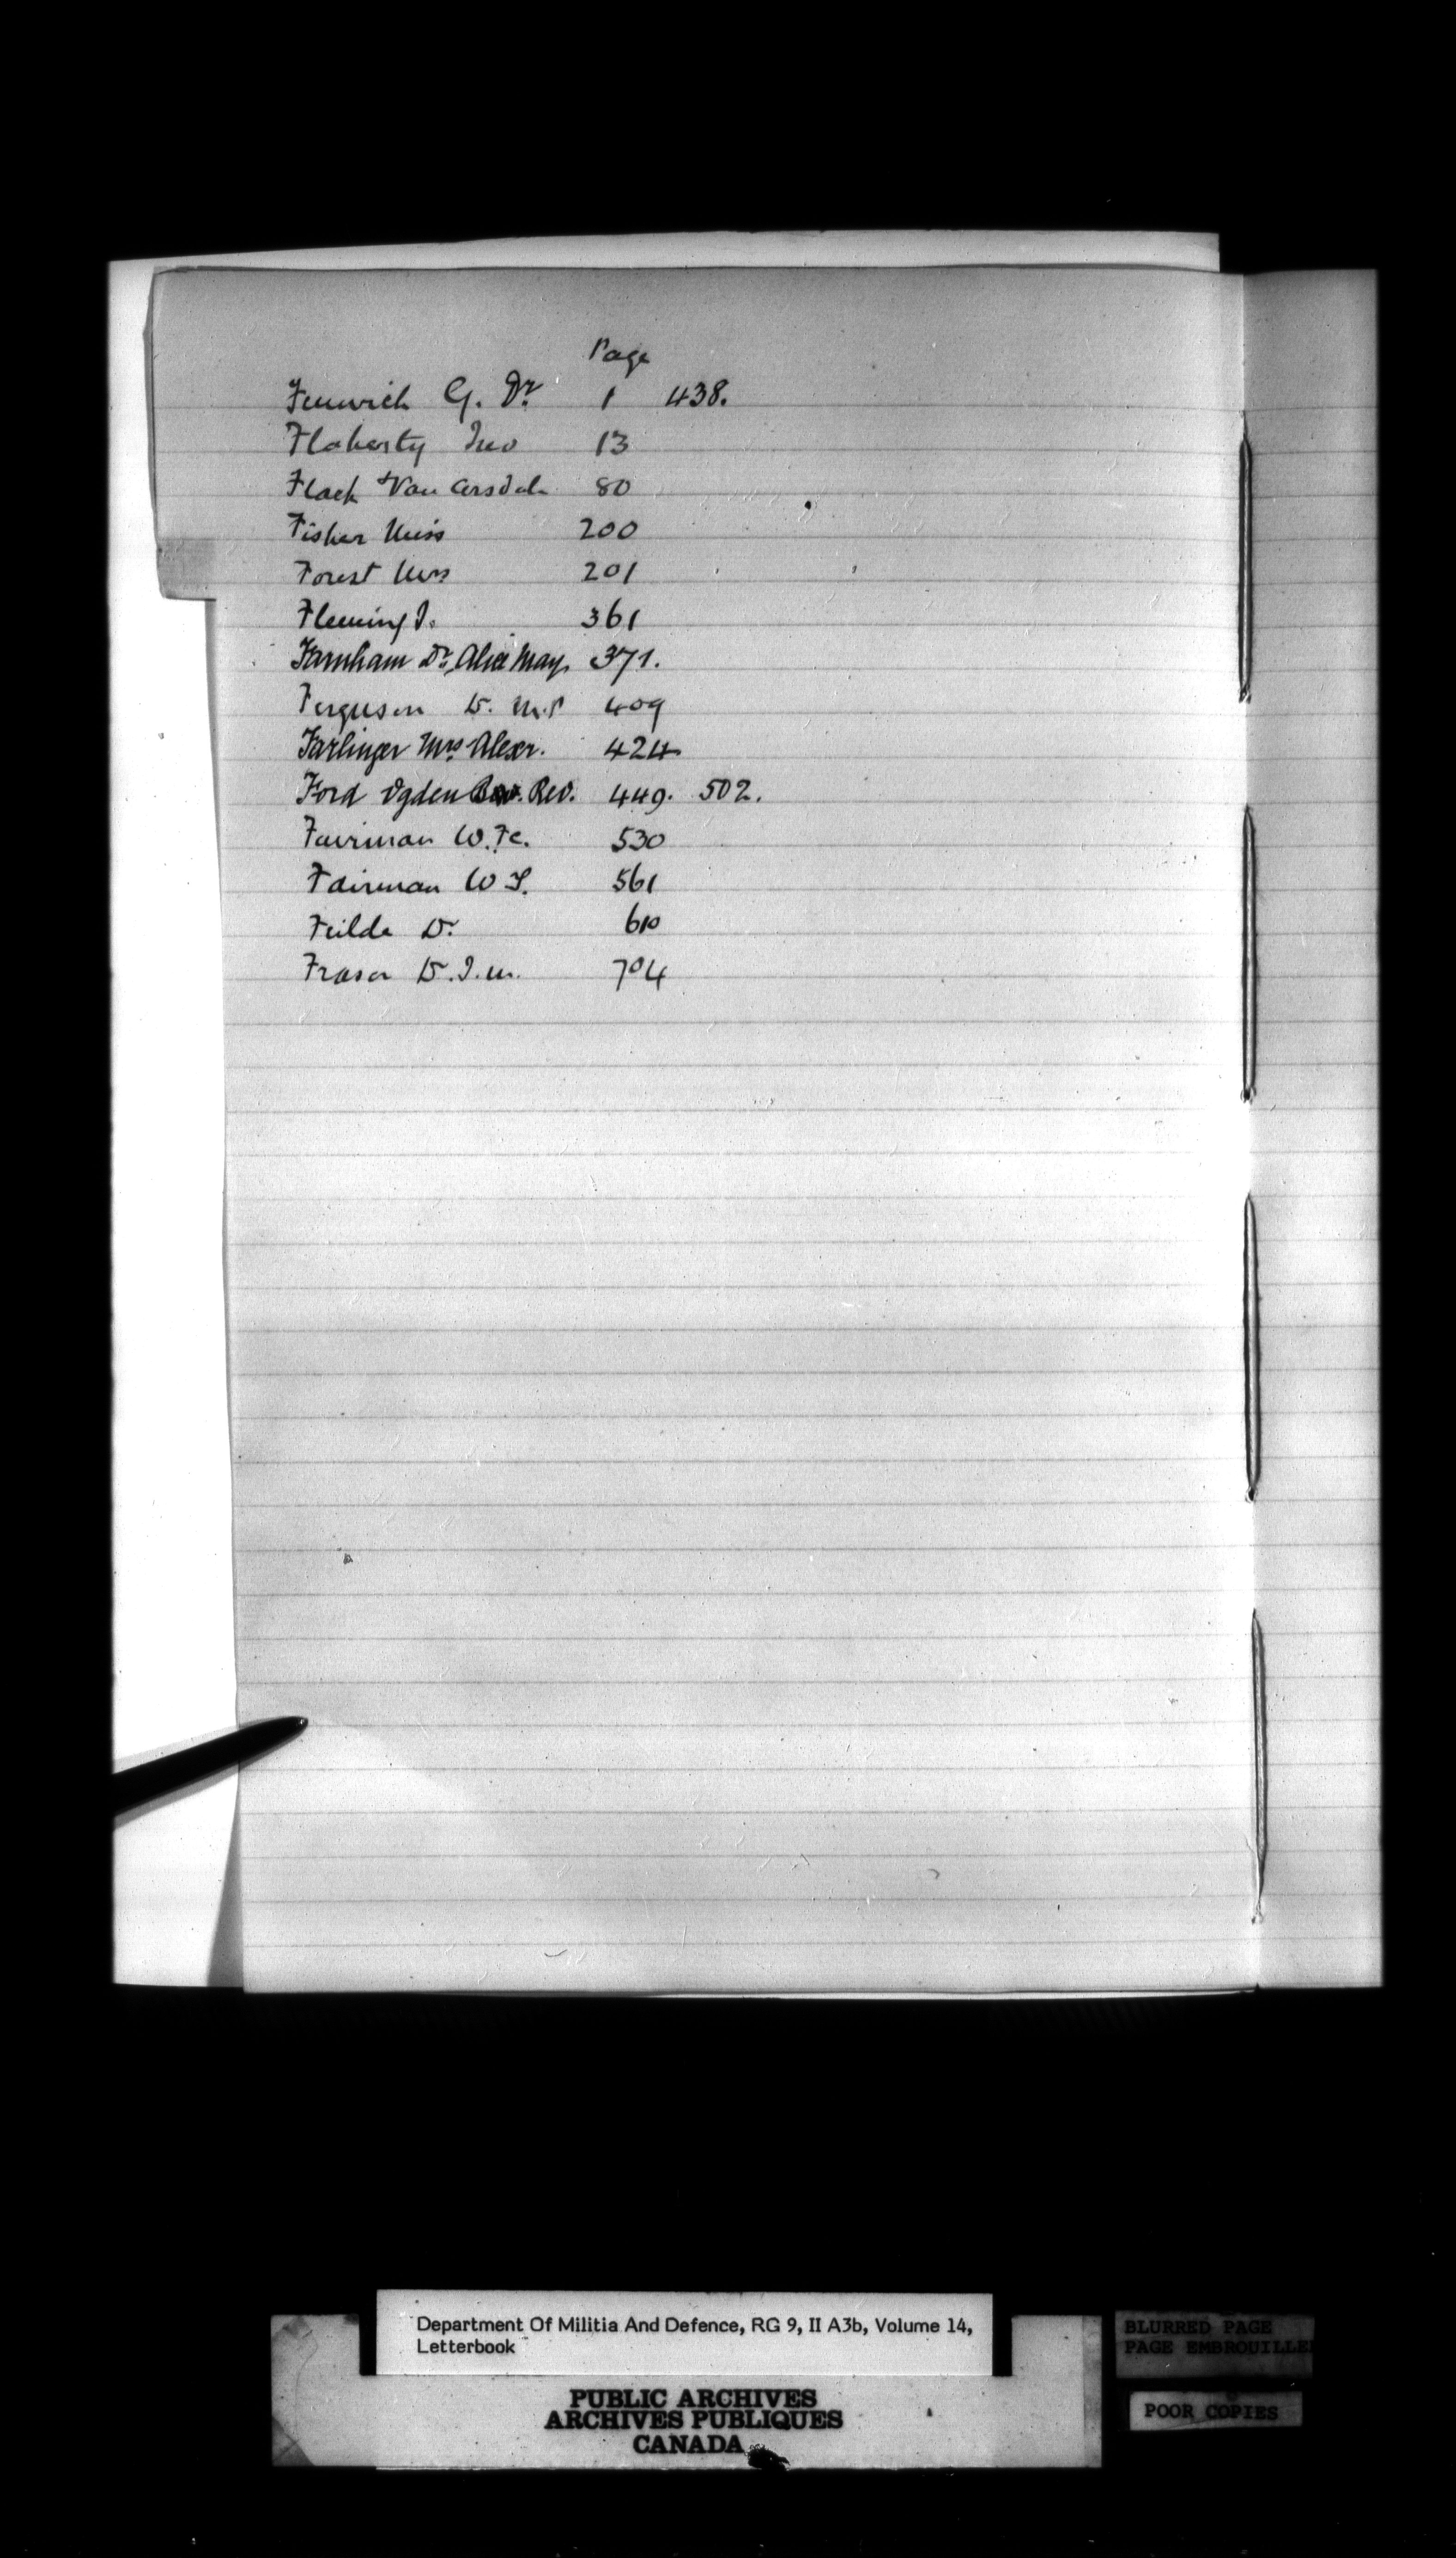 Page
Fenwick G. Dr. 1 438.
Flaherty Jno 13
Flack & Van Arsdale 80
Fisher Miss 200
Forest Mrs 201
Fleming J. 361
Farnham Dr. Alice May. 371.
Ferguson D. M.P 409
Farlinger Mrs Alexr. 424
Ford Ogden Rev. 449. 502.
Fairman W. 530
Fairman W 561
Feilde Dr. 610
Fraser D. J. M. 704
Department Of Militia And Defence, RG 9, II A3b, Volume 14,
Letterbook
PUBLIC ARCHIVES
ARCHIVES PUBLIQUES
CANADA
BLURRED PAGE
PAGE EMBROUILLE
POOR COPIES